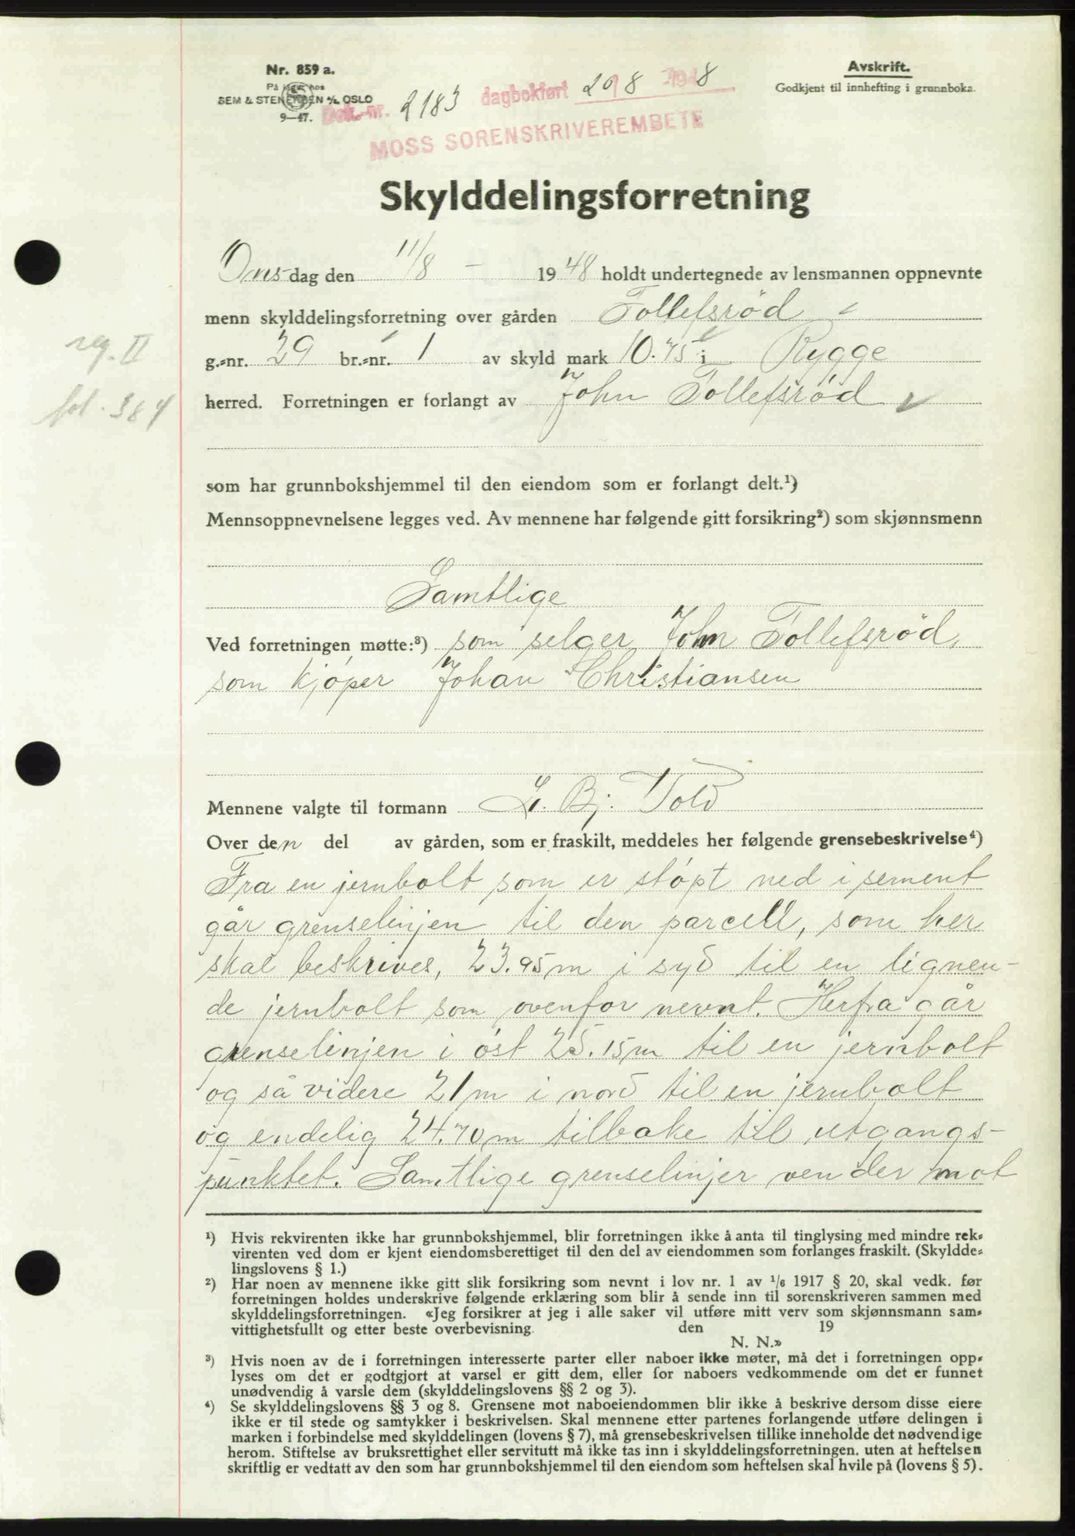 Nr. 859 a.
På lager hos
SEM & STENERSEN A/S, OSLO
9—47.
Avskrift.
Godkjent til innhefting i grunnboka.
Dok.nr. 2183 dagbokført 20/8 1948
MOSS SORENSKRIVEREMBETE
Skylddelingsforretning
Onsdag den 11/8 - 1948 holdt undertegnede av lensmannen oppnevnte
menn skylddelingsforretning over gården Follefsrød
reg. II
g.-nr. 29 br.-nr. 1 av skyld mark 10.75 i Rygge
fol. 384
herred. Forretningen er forlangt av John Follefsrød
som har grunnbokshjemmel til den eiendom som er forlangt delt.¹)
Mennsoppnevnelsene legges ved. Av mennene har følgende gitt forsikring²) som skjønnsmenn
Samtlige
Ved forretningen møtte:³) som selger John Follefsrød,
som kjøper Johan Christiansen
Mennene valgte til formann L. Bj. Vold
Over den del av gården, som er fraskilt, meddeles her følgende grensebeskrivelse⁴)
Fra en jernbolt som er støpt ned i sement
går grenselinjen til den parcell, som her
skal beskrives, 23.95 m i syd til en lignen-
de jernbolt som ovenfor nevnt. Herfra går
grenselinjen i øst 25.15 m til en jernbolt
og så videre 21 m i nord til en jernbolt
og endelig 24.70 m tilbake til utgangs-
punktet. Samtlige grenselinjer vender mot
¹) Hvis rekvirenten ikke har grunnbokshjemmel, blir forretningen ikke å anta til tinglysing med mindre rek-
virenten ved dom er kjent eiendomsberettiget til den del av eiendommen som forlanges fraskilt. (Skyldde-
lingslovens § 1.)
²) Har noen av mennene ikke gitt slik forsikring som nevnt i lov nr. 1 av 1/6 1917 § 20, skal vedk. før
forretningen holdes underskrive følgende erklæring som blir å sende inn til sorenskriveren sammen med
skylddelingsforretningen. «Jeg forsikrer at jeg i alle saker vil utføre mitt verv som skjønnsmann sam-
vittighetsfullt og etter beste overbevisning. den 19
N. N.»
³) Hvis noen av de i forretningen interesserte parter eller naboer ikke møter, må det i forretningen opp-
lyses om det er godtgjort at varsel er gitt dem, eller for naboers vedkommende om det er funnet
unødvendig å varsle dem (skylddelingslovens §§ 2 og 3).
⁴) Se skylddelingslovens §§ 3 og 8. Grensene mot naboeiendommen blir ikke å beskrive dersom disse eiere
ikke er til stede og samtykker i beskrivelsen. Skal mennene etter partenes forlangende utføre delingen i
marken i forbindelse med skylddelingen (lovens § 7), må grensebeskrivelsen tillike inneholde det nødvendige
herom. Stiftelse av bruksrettighet eller servitutt må ikke tas inn i skylddelingsforretningen, uten at heftelsen
skriftlig er vedtatt av den som har grunnbokshjemmel til den eiendom som heftelsen skal hvile på (lovens § 5).